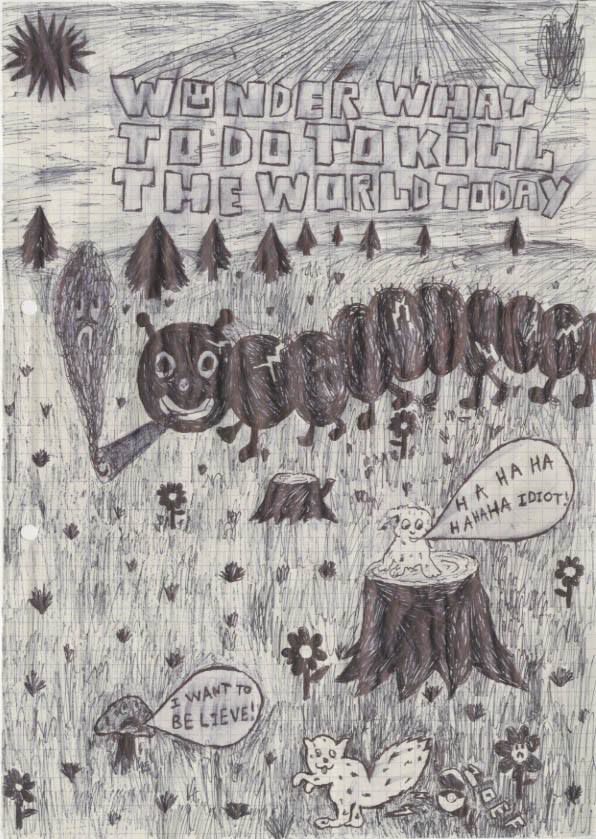 WONDER WHAT
TO DO TO KiLL
THE WORLD TODAY
HA HA HA
HAHAHA IDIOT!
I WANT TO
BELIEVE!